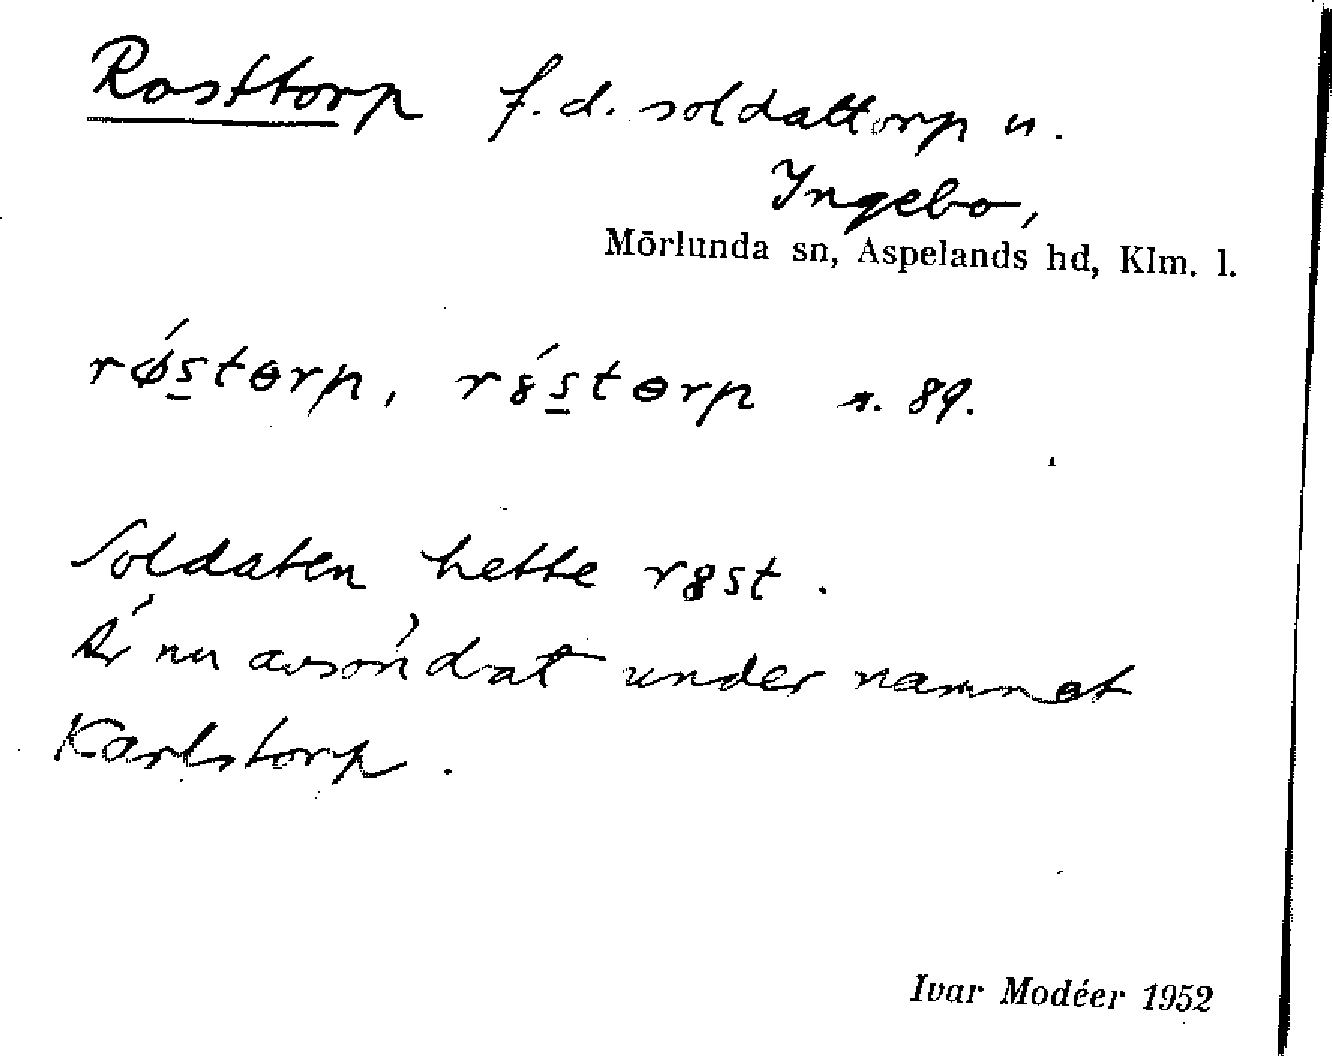 Rosttorp f.d. soldattorp u.
Ingebo,
Mörlunda sn, Aspelands hd, Klm. l.
rǿs̲tɵrp, r8́s̲tɵrp s. 89.
Soldaten hette r8st.
Är nu avsöndrat under namnet
Karlstorp.
Ivar Modéer 1952